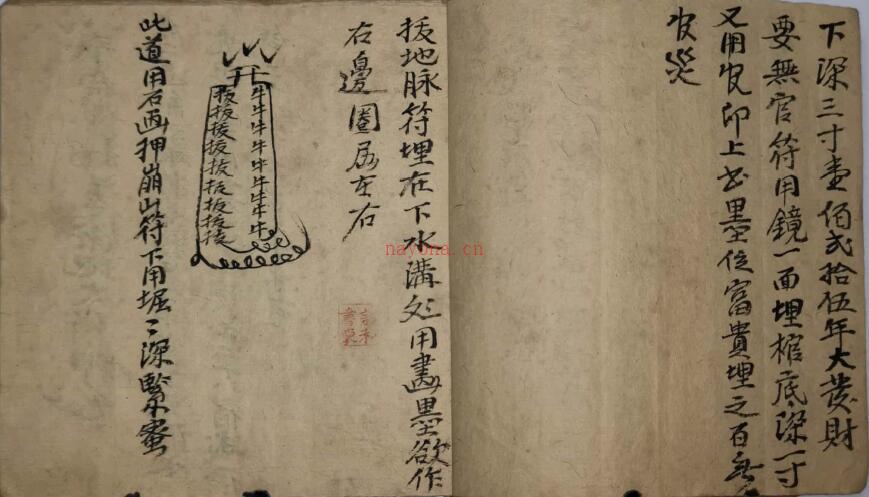 下深三寸壹佰贰拾伍年大發財
要無官符用鏡一面埋棺底深一寸
又用 印上 墨 富貴埋之百無
災
拔地脉符埋在下水溝 用畫墨欲作
右邊 居左右
开
牛牛牛牛牛牛牛牛
拔拔拔拔拔拔拔拔拔
此道用石画押崩山符下用堀深緊蜜
nayona.cn